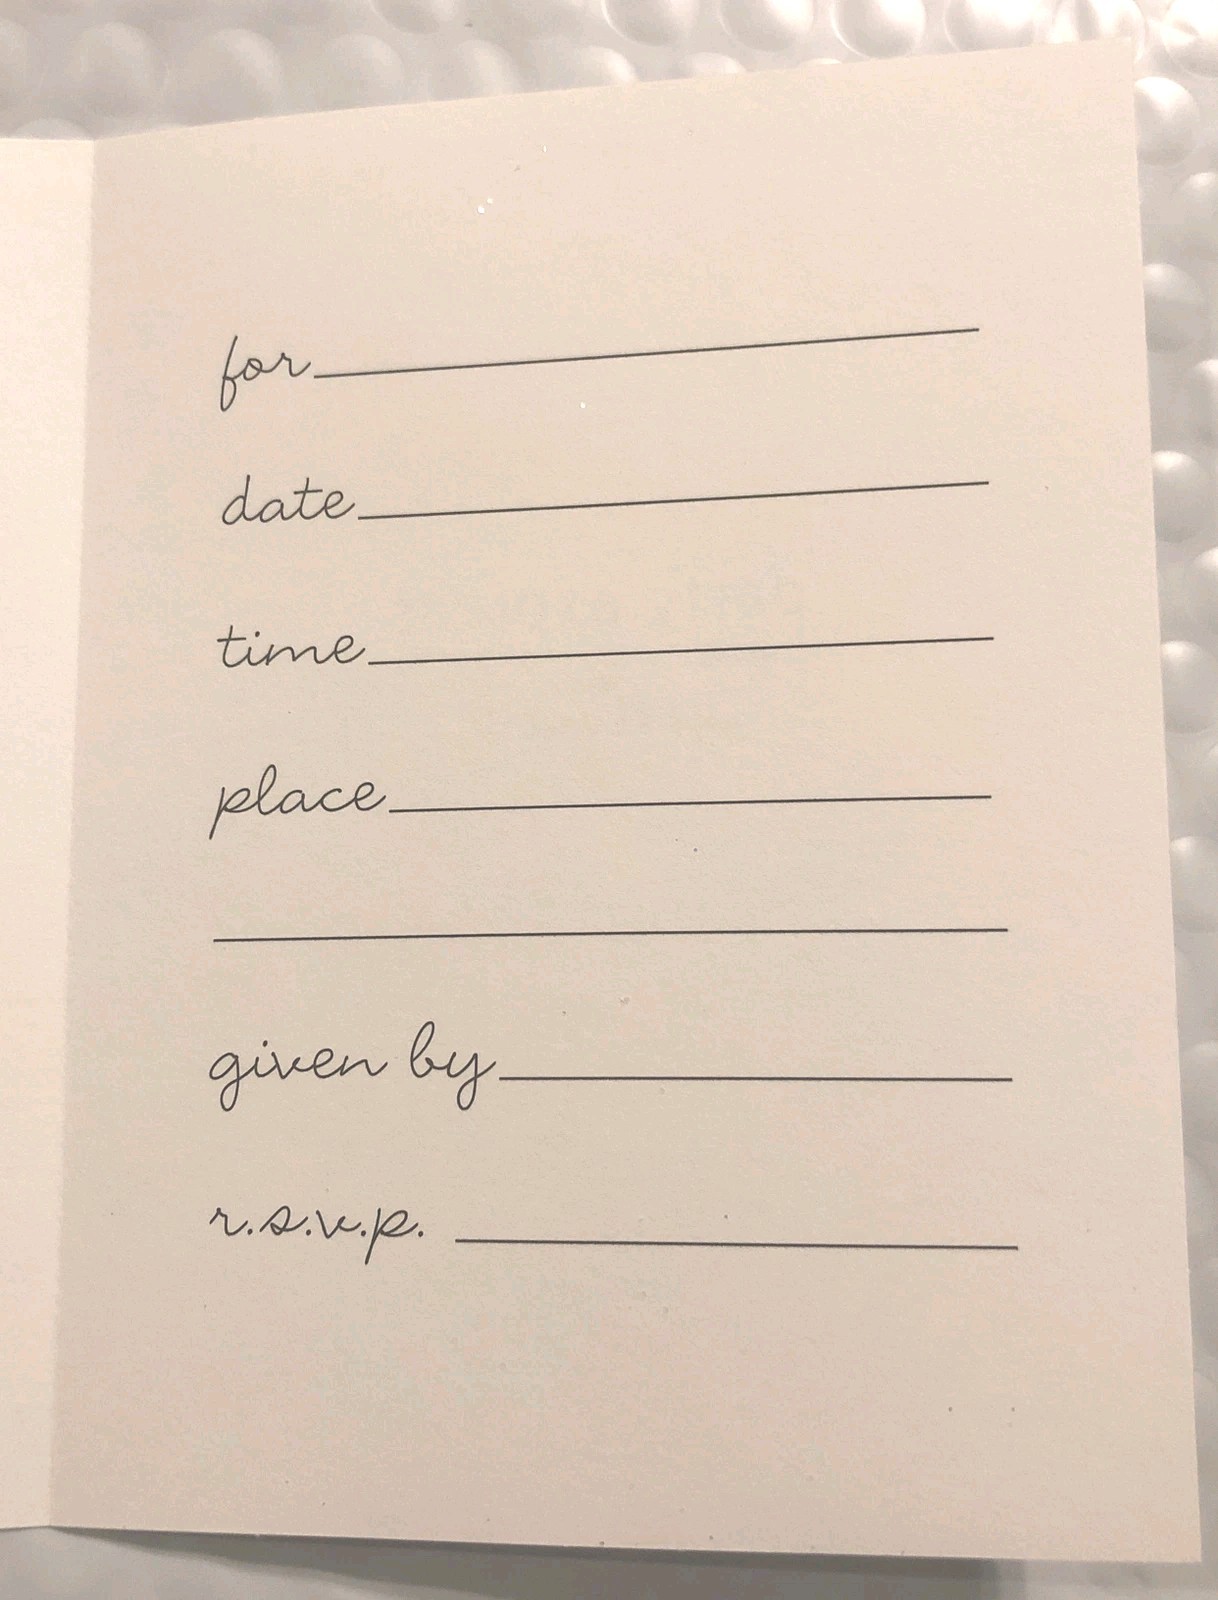 for
date
time
place
given by
r.s.v.p.